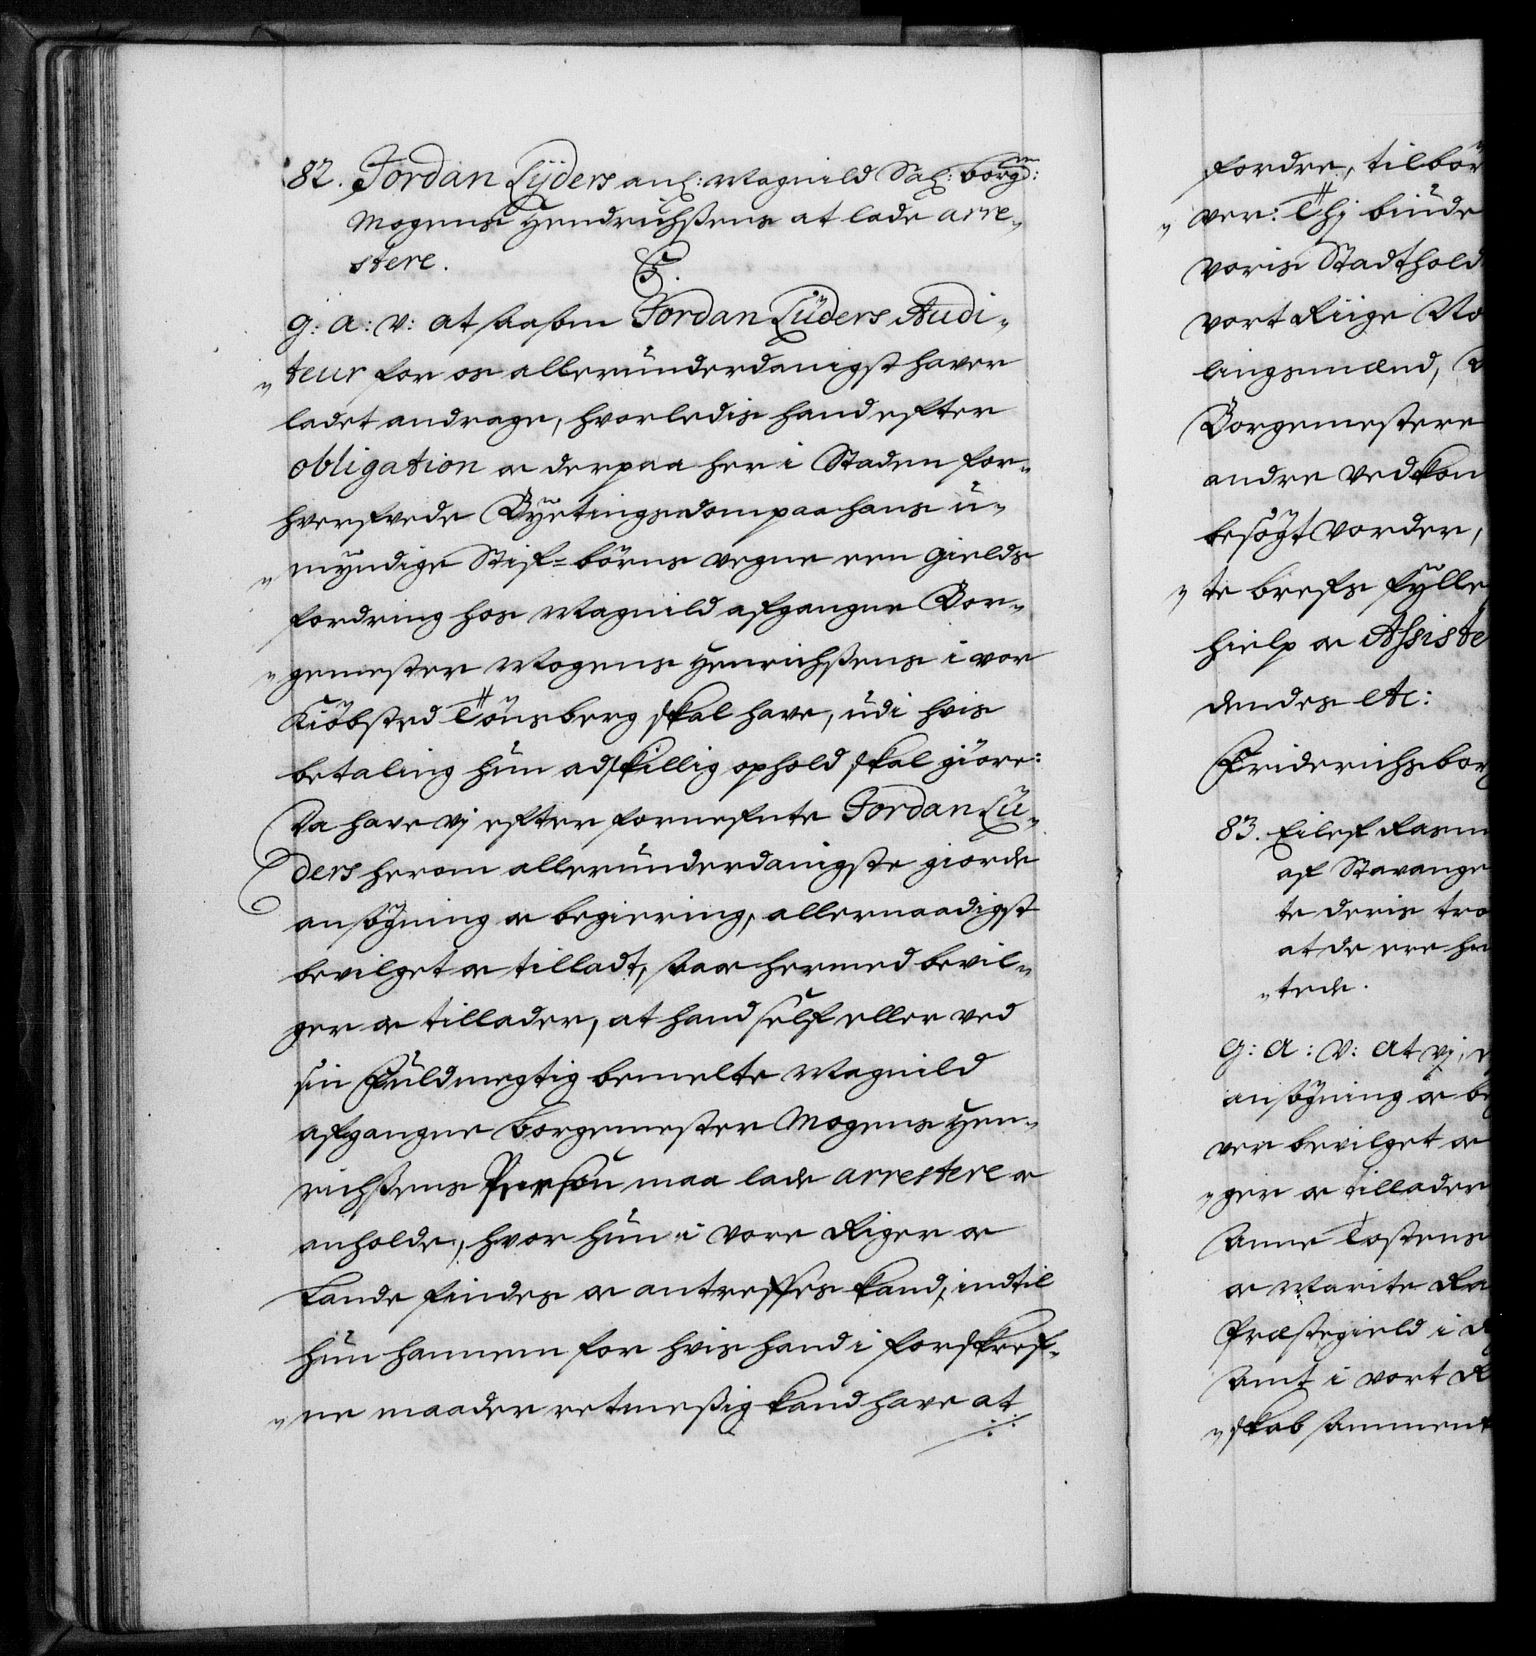 82. Jordan Lÿders anl: Magnild Sal: borgm:
Mogens Hendrichssens at lade arre„
stere. C5.
G: A: V: at saasom Jordan Lüders Audi„
„teur for os allerunderdanigst haver
ladet andrage, hvorledis hand efter
obligation og derpaa her i Staden for„
hverfvede Byetingsdom paa hans u„
„myndige Stif-börns vegne een gields
fordring hos Magnild afgangne Bor„
„gemester Mogens Henrichssens i vor
Kiöbsted Tönsberg skal have, udi hvis
betaling hun adskillig ophold skal giöre:
Da have vj efter fornefnte Jordan Lü„
ders herom allerunderdanigste giorde
ansögning og begiering, allernaadigst
bevilget og tilladt, saa og hermed bevil„
ger og tillader, at hand self eller ved
sin Fuldmegtig bemelte Magnild
afgangne borgemester Mogens Hen„
richssens Person maa lade arrestere og
anholde, hvor hun i vore Riger og
Lande findes og antreffes kand, indtil
hun hannem for hvis hand i forskref„
„ne maader retmessig kand have at
fordre, tilbör
„ver: Thj biude
voris Stadthold
vort Riige No
lingsmænd,
Borgemestere
andre vedkom
besögt vorder,
„te brefs fylle
hielp og Assiste
dendes etc:
Friderichsborg
83. Eilef Rasm
af Stavange
te deris tro
at de ere
„tede.
G: A: V: At vj,
ansögning og be
ver bevilget og
„ger og tillader
Anne Tostens
og Marite Ra
Præstegield i
Amt i vort R
„skab sammen